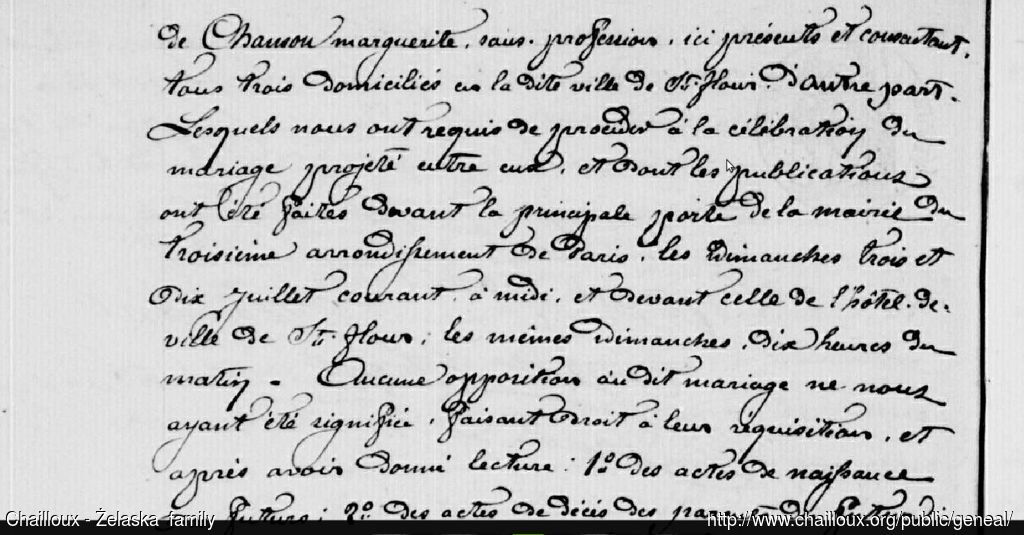 de Chanson marguerite, sans profession, ici présents et consentant,
tous trois domiciliés en la dite ville de St. flour, d'autre part.
Lesquels nous ont requis de procéder à la célébration du
mariage projeté entre eux, et dont les publications
ont été faites devant la principale porte de la mairie du
troisième arrondissement de Paris, les dimanches trois et
dix juillet courant, à midi, et devant celle de l'hôtel-de-
ville de St. flour, les mêmes dimanches, dix heures du
matin. Aucune opposition audit mariage ne nous
ayant été signifiée, faisant droit à leur réquisition, et
après avoir donné lecture : 1º des actes de naissance
futurs ; 2º des actes de décès des
Chailloux - Żelaska family
http://www.chailloux.org/public/geneal/